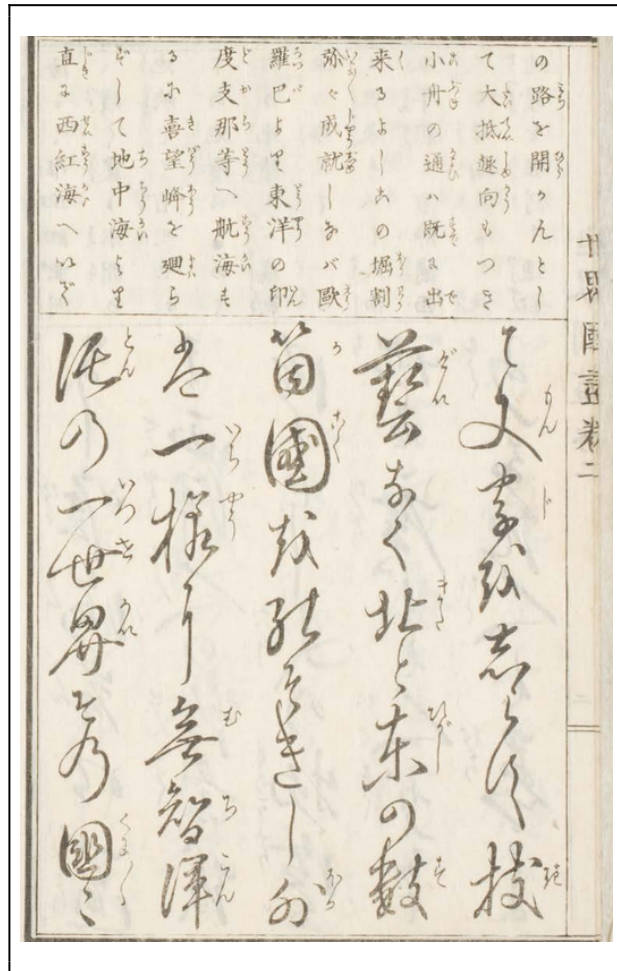 世界國盡卷二
の路を開かんとし
て大抵趣向もつき
小舟の通ハ既に出
来るよしこの堀割
弥々成就しなバ歐
羅巴より東洋の印
度支那等へ航海す
るに喜望峰を廻ら
ずして地中海より
直に西紅海へいで
て文字をしらず技
藝なく北と東の数
箇國を除きし外
は一様に無智渾
沌の一世界その國々